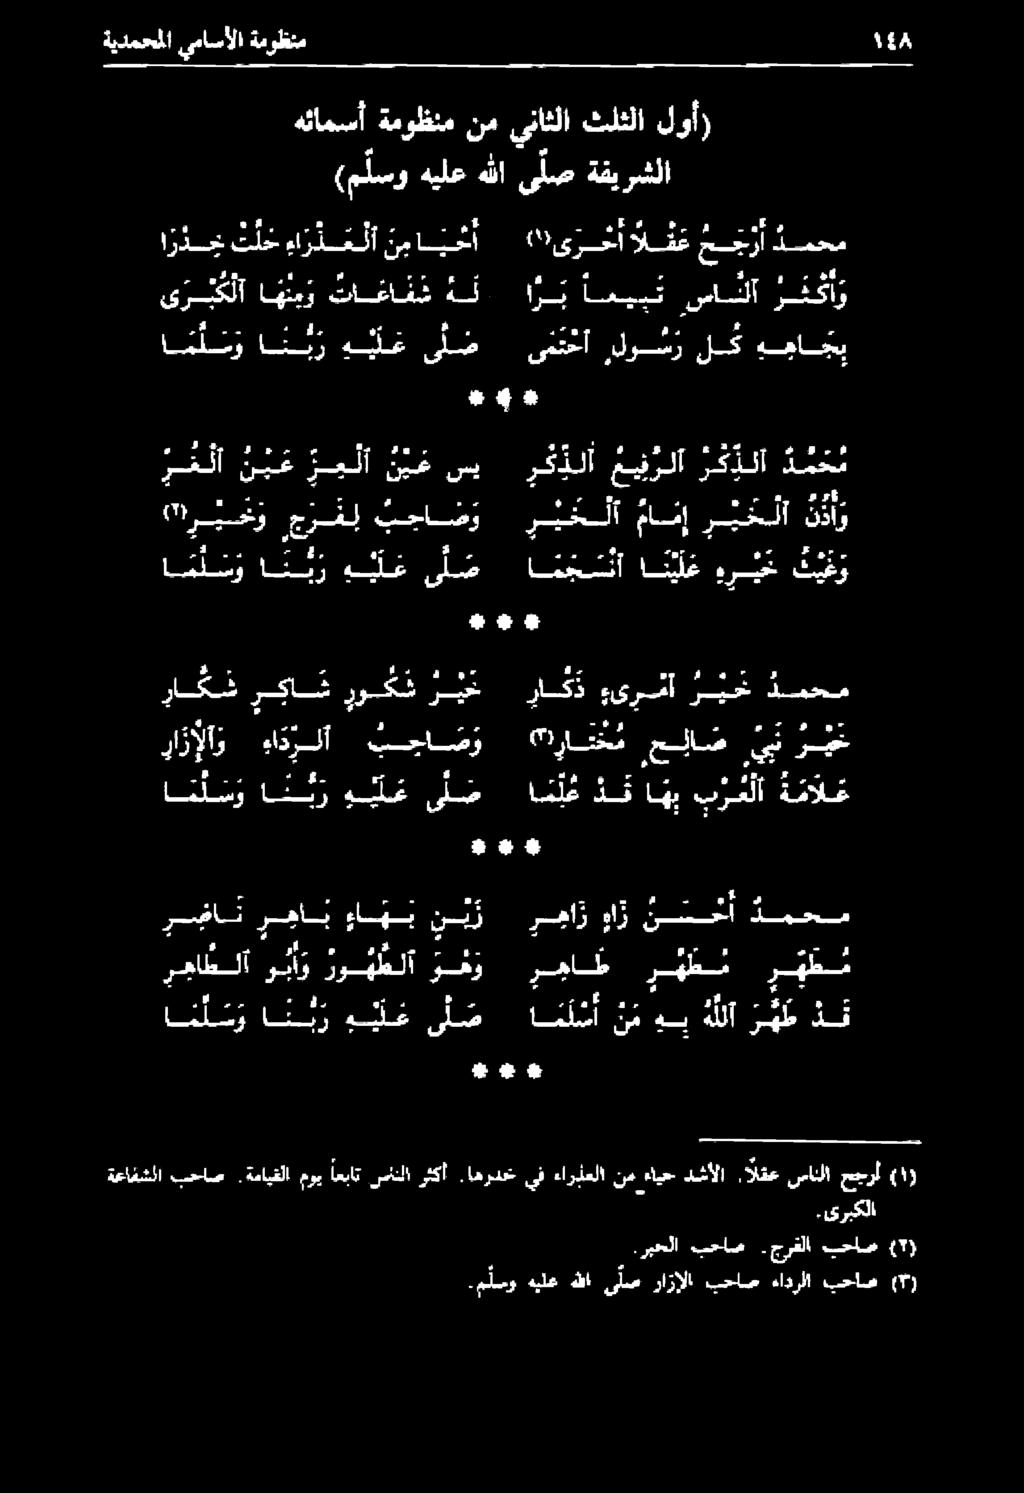 ١٤٨ منظومة الأسامي المحمدية
(أول الثلث الثاني من منظومة أسمائه
الشريفة صلّى الله عليه وسلّم)
محمدٌ أَرْجَحُ عَقْلاً أَحْرَى(١) أَحْيَا مِنَ ٱلْعَذْرَاءِ حَلَّتْ خِدْرَا
وَأَكْثَرُ ٱلنَّاسِ تَبِيعاً بَرَّا لَهُ شَفَاعَاتٌ وَمِنْهَا ٱلْكُبْرَى
بِجَاهِهِ كُلُّ رَسُولٍ ٱحْتَمَى صَلَّى عَلَيْهِ رَبُّنَا وَسَلَّمَا
* * *
مُحَمَّدُ ٱلذِّكْرُ ٱلرَّفِيعُ ٱلذِّكْرِ يس عَيْنُ ٱلْعِزِّ عَيْنُ ٱلْغُرِّ
وَأُذُنُ ٱلْخَيْرِ إِمَامُ ٱلْخَيْرِ وَصَاحِبٌ لِفَرَجٍ وَخَيْرِ(٢)
وَغَيْثُ خَيْرِهِ عَلَيْنَا ٱنْسَجَمَا صَلَّى عَلَيْهِ رَبُّنَا وَسَلَّمَا
* * *
محمدٌ خَيْرُ ٱمْرِىءٍ ذَكَّارِ خَيْرُ شَكُورٍ شَاكِرٍ شَكَّارِ
خَيْرُ نَبِيٍّ صَالِحٍ مُخْتَارِ(٣) وَصَاحِبُ ٱلرِّدَاءِ وَٱلْإِزَارِ
عَلَامَةُ ٱلْعُرْبِ بِهَا قَدْ عُلِّمَا صَلَّى عَلَيْهِ رَبُّنَا وَسَلَّمَا
* * *
محمدٌ أَحْسَنُ زَاهٍ زَاهِرِ زَيْنُ بَهَاءٍ بَاهِرٍ نَاضِرِ
مُطَهَّرٌ مُطَهِّرٌ طَاهِرِ وَهُوَ ٱلطَّهُورُ وَأَبُو ٱلطَّاهِرِ
قَدْ طَهَّرَ ٱللهُ بِهِ مَنْ أَسْلَمَا صَلَّى عَلَيْهِ رَبُّنَا وَسَلَّمَا
* * *
(١) أرجح الناس عقلاً. الأشد حياء من العذراء في خدرها. أكثر الناس تابعاً يوم القيامة. صاحب الشفاعة
الكبرى.
(٢) صاحب الفرج. صاحب الخير.
(٣) صاحب الرداء صاحب الإزار صلّى الله عليه وسلّم.